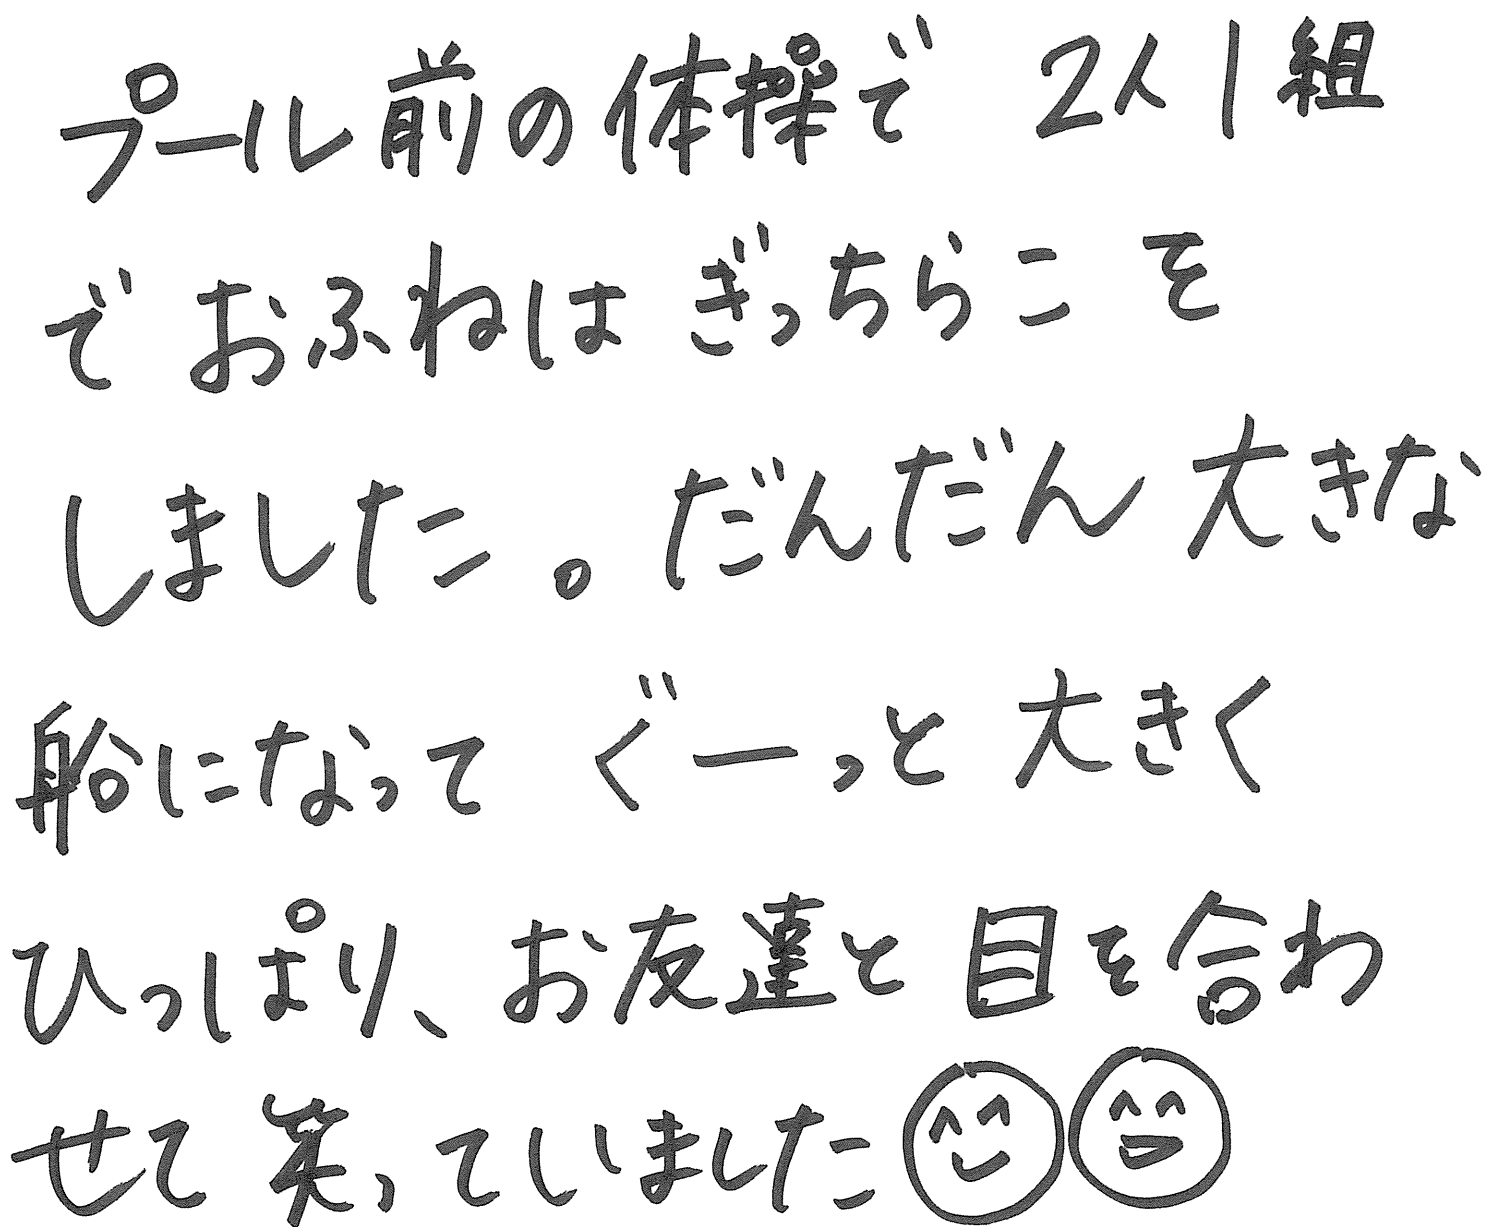 プール前の体操で 2人1組
で おふねは ぎっちらこ を
しました。だんだん 大きな
船になって ぐーっと 大きく
ひっぱり、お友達と 目を合わ
せて 笑っていました